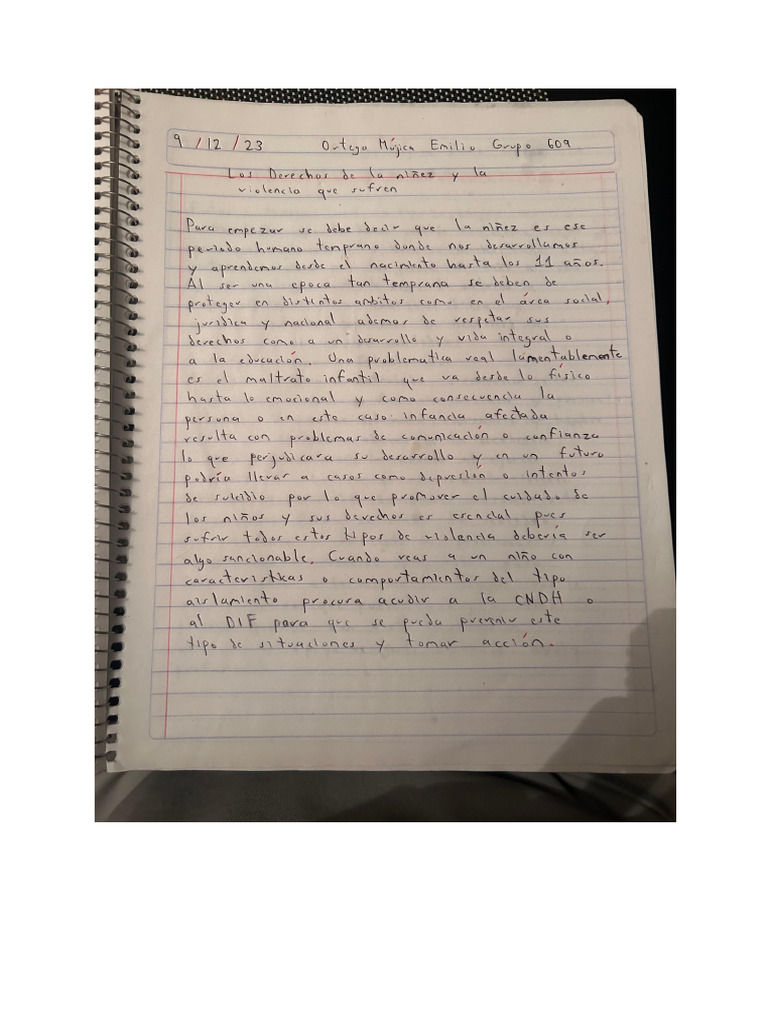 9 / 12 / 23 Ortega Mújica Emilio Grupo 609
Los Derechos de la niñez y la
violencia que sufren
Para empezar se debe decir que la niñez es ese
periodo humano temprano donde nos desarrollamos
y aprendemos desde el nacimiento hasta los 11 años.
Al ser una epoca tan temprana se deben de
proteger en distintos ambitos como en el área social,
jurídica y nacional ademas de respetar sus
derechos como a un desarrollo y vida integral o
a la educación. Una problematica real lamentablemente
es el maltrato infantil que va desde lo físico
hasta lo emocional y como consecuencia la
persona o en este caso infancia afectada
resulta con problemas de comunicación o confianza
lo que perjudicara su desarrollo y en un futuro
podría llevar a casos como depresión o intentos
de suicidio por lo que promover el cuidado de
los niños y sus derechos es esencial pues
sufrir todos estos tipos de violencia debería ser
algo sancionable. Cuando veas a un niño con
caracteristicas o comportamientos del tipo
aislamiento procura acudir a la CNDH o
al DIF para que se pueda prevenir este
tipo de situaciones y tomar acción.